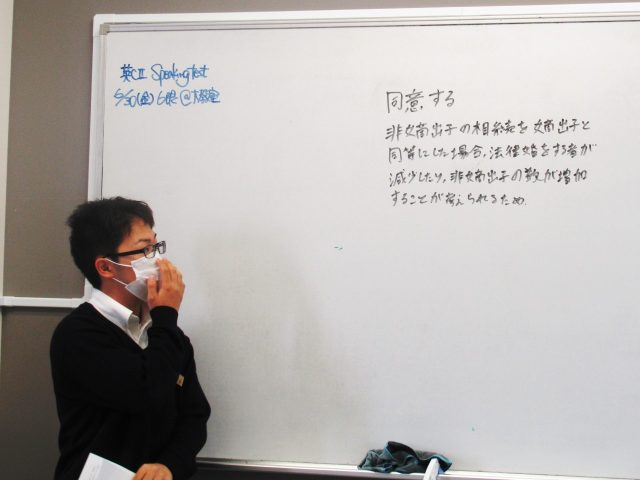 英CⅡ Speaking Test
5/30(金) 6限 @大教室
同意する
非嫡出子の相続を嫡出子と
同等にした場合、法律婚をする者が
減少したり、非嫡出子の数が増加
することが考えられるため.